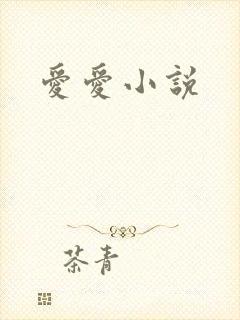 愛愛小說
茶青